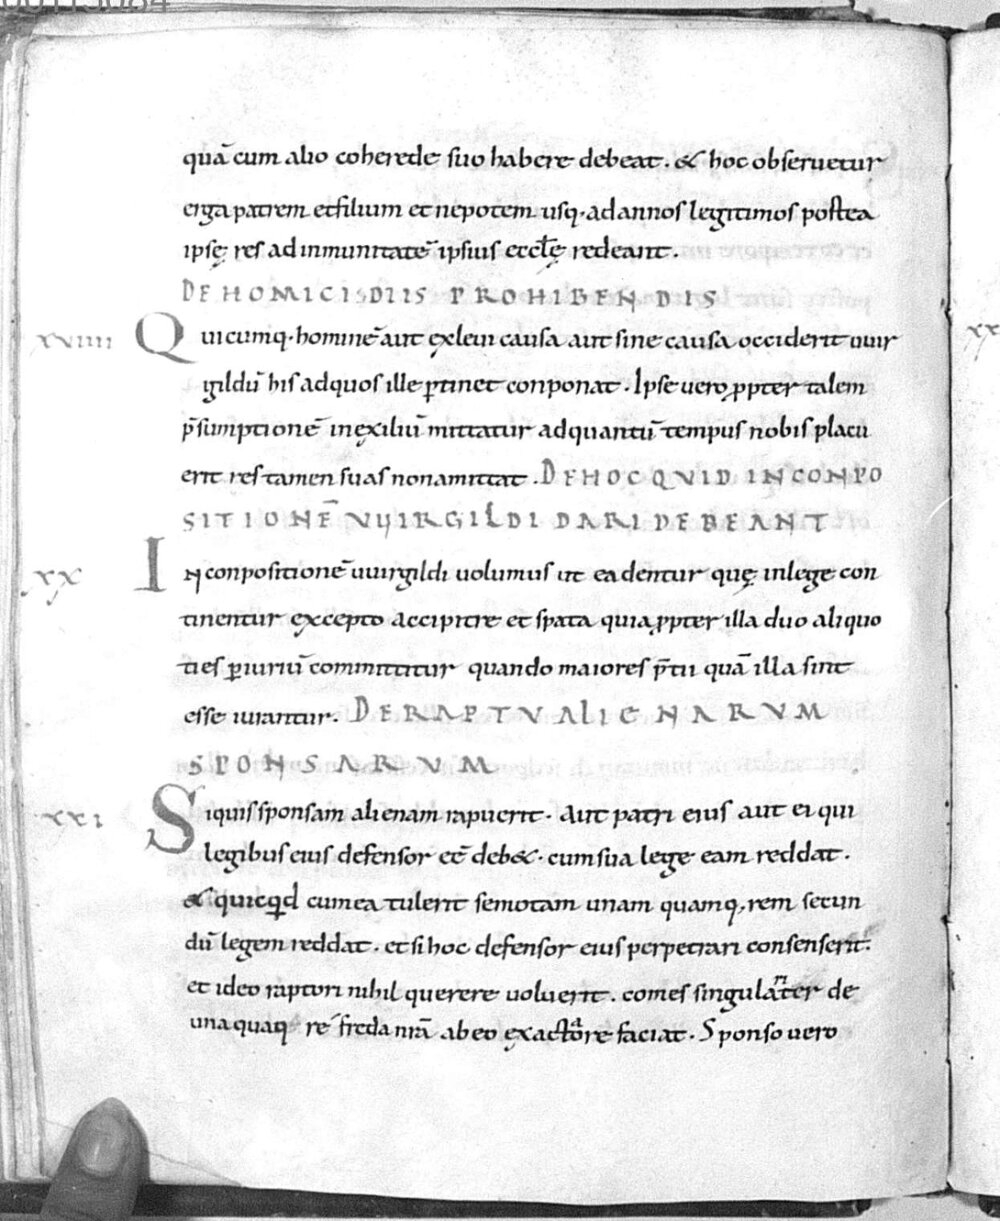 quā cum alio coherede suo habere debeat. & hoc obseruetur
erga patrem et filium et nepotem usq· ad annos legitimos postea
ipsę res ad inmunitatē ipsius eccłę redeant.
DE HOMICIDIIS PROHIBENDIS
XVIIII Quicumq· hominē aut ex leui causa aut sine causa occiderit uuir
gildū his ad quos ille ꝑtinet conponat. Ipse uero ꝓpter talem
p̄sumptionē in exiliū mittatur ad quantū tempus nobis placu
erit res tamen suas non amittat. DE HOC QVID IN CONPO
SITIONĒ VVIRGILDI DARI DEBEANT
XX In conpositionē uuirgildi uolumus ut ea dentur quę in lege con
tinentur excepto accipitre et spata quia ꝓpter illa duo aliquo
ties ꝑiuriū committitur quando maioris p̄tii quā illa sint
esse iurantur. DE RAPTV ALIENARVM
SPONSARVM
XXI Siquis sponsam alienam rapuerit. Aut patri eius aut ei qui
legibus eius defensor eē deb&. cum sua lege eam reddat.
& quicqd cum ea tulerit semotam unam quamq, rem secun
dū legem reddat. et si hoc defensor eius perpetrari consenserit.
et ideo raptori nihil querere uoluerit. comes singulariter de
unaquaq· re freda nrā ab eo exactare faciat. Sponso uero